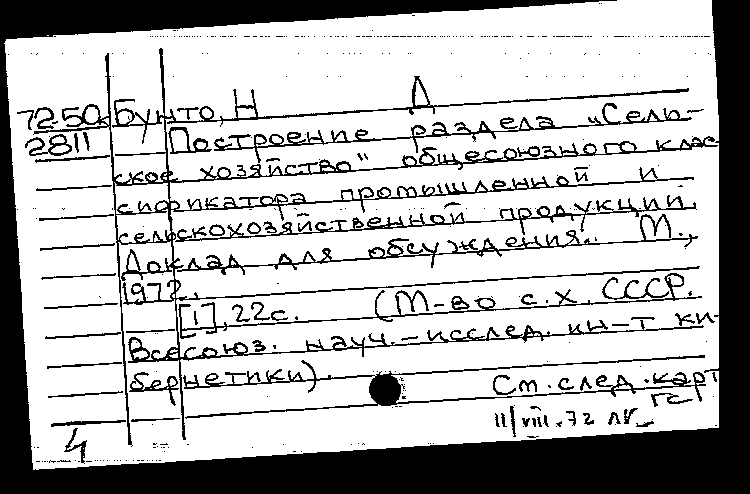 Бунто, Н Д
7250
2811 Построение раздела „Сель-
ское хозяйство" общесоюзного клас
сификатора промышленной и
сельскохозяйственной продукции.
Доклад для обсуждения. М.,
1972.
[1], 22с. (М-во с.х. СССР.
Всесоюз. науч.-исслед. ин-т ки-
бернетики).
См. след. карт
II/VIII.72
4